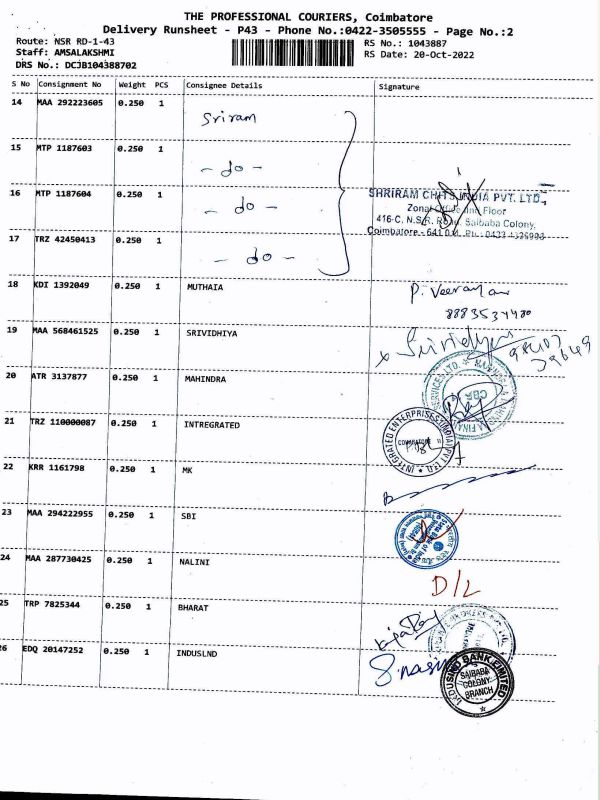 THE PROFESSIONAL COURIERS, Coimbatore
Delivery Runsheet - P43 - Phone No.:0422-3505555 - Page No.:2
Route: NSR RD-1-43
RS No.: 1043887
Staff: AMSALAKSHMI
RS Date: 20-Oct-2022
DRS No.: DCJB104388702
S No Consignment No Weight PCS Consignee Details Signature
14 MAA 292223605 0.250 1 Sriram
15 MTP 1187603 0.250 1 - do -
16 MTP 1187604 0.250 1 - do -
SHRIRAM CHITS INDIA PVT. LTD.,
Zonal Office and Floor
416-C, N.S.R. Road, Saibaba Colony,
Coimbatore - 641 0
17 TRZ 42450413 0.250 1 - do -
18 KDI 1392049 0.250 1 MUTHAIA P. Veeraman
8883534480
19 MAA 568461525 0.250 1 SRIVIDHIYA x Srividhya
98407
39649
20 ATR 3137877 0.250 1 MAHINDRA
CBE
21 TRZ 110000087 0.250 1 INTREGRATED
INTEGRATED ENTERPRISES (INDIA) PVT LTD.
COIMBATORE
22 KRR 1161798 0.250 1 MK
23 MAA 294222955 0.250 1 SBI
24 MAA 287730425 0.250 1 NALINI D/L
25 TRP 7825344 0.250 1 BHARAT
26 EDQ 20147252 0.250 1 INDUSLND
INDUSIND BANK LIMITED
SAIBABA
COLONY
BRANCH